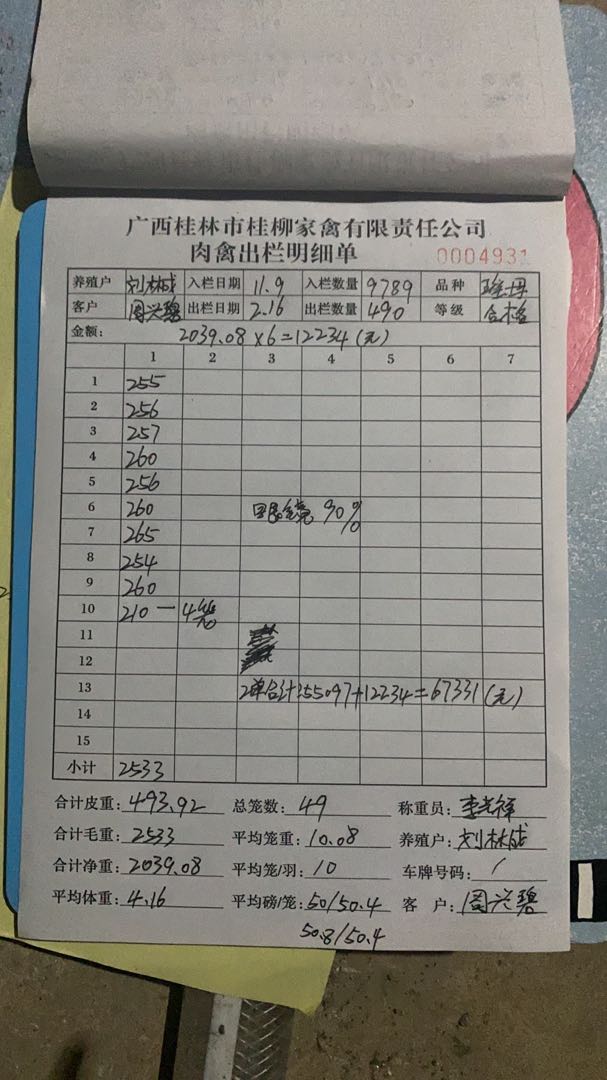 广西桂林市桂柳家禽有限责任公司
肉禽出栏明细单 0004931
养殖户 刘林成 入栏日期 11.9 入栏数量 9789 品种
客户 周兴碧 出栏日期 2.16 出栏数量 490 等级 合格
金额: 2039.08×6=12234(元)
1 2 3 4 5 6 7
1 255
2 256
3 257
4 260
5 256
6 260 90%
7 265
8 254
9 260
10 210 — 4笼
11
12
13 2单合计:55097+12234=67331(元)
14
15
小计 2533
合计皮重: 493.92 总笼数: 49 称重员:
合计毛重: 2533 平均笼重: 10.08 养殖户: 刘林成
合计净重: 2039.08 平均笼/羽: 10 车牌号码: /
平均体重: 4.16 平均磅/笼: 50/50.4 客 户: 周兴碧
50.8/50.4